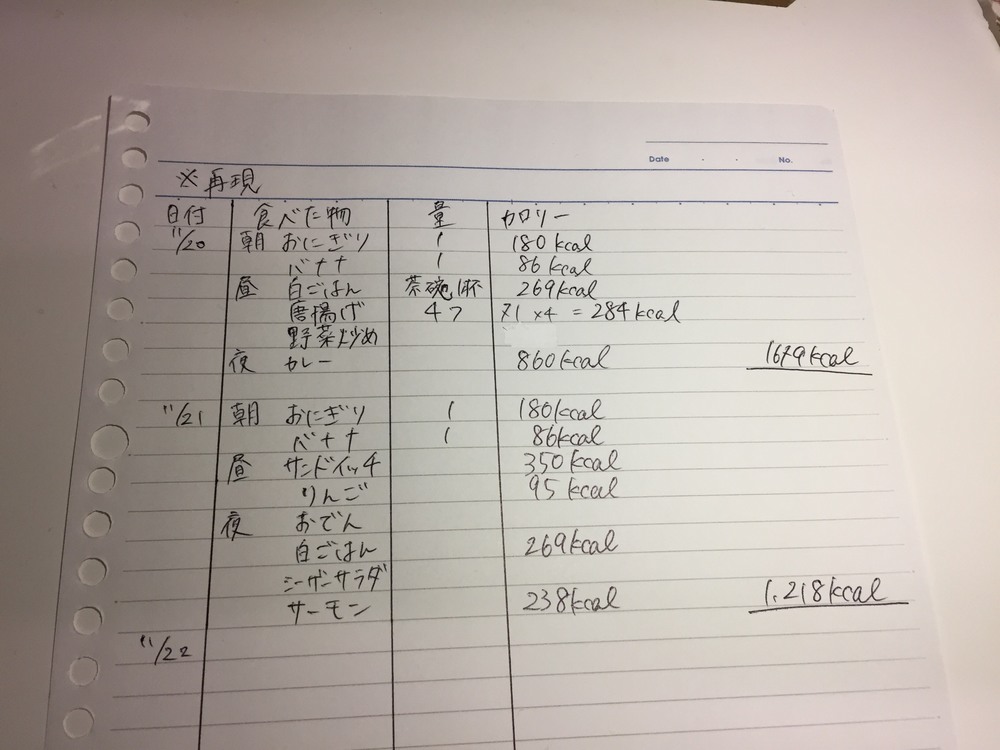 Date ・ ・ No.
※再現
日付 食べた物 量 カロリー
11/20 朝 おにぎり 1 180kcal
バナナ 1 86kcal
昼 白ごはん 茶碗1杯 269kcal
唐揚げ 4つ 71×4=284kcal
野菜炒め
夜 カレー 860kcal 1679kcal
11/21 朝 おにぎり 1 180kcal
バナナ 1 86kcal
昼 サンドイッチ 350kcal
りんご 95kcal
夜 おでん
白ごはん 269kcal
シーザーサラダ
サーモン 238kcal 1.218kcal
11/22